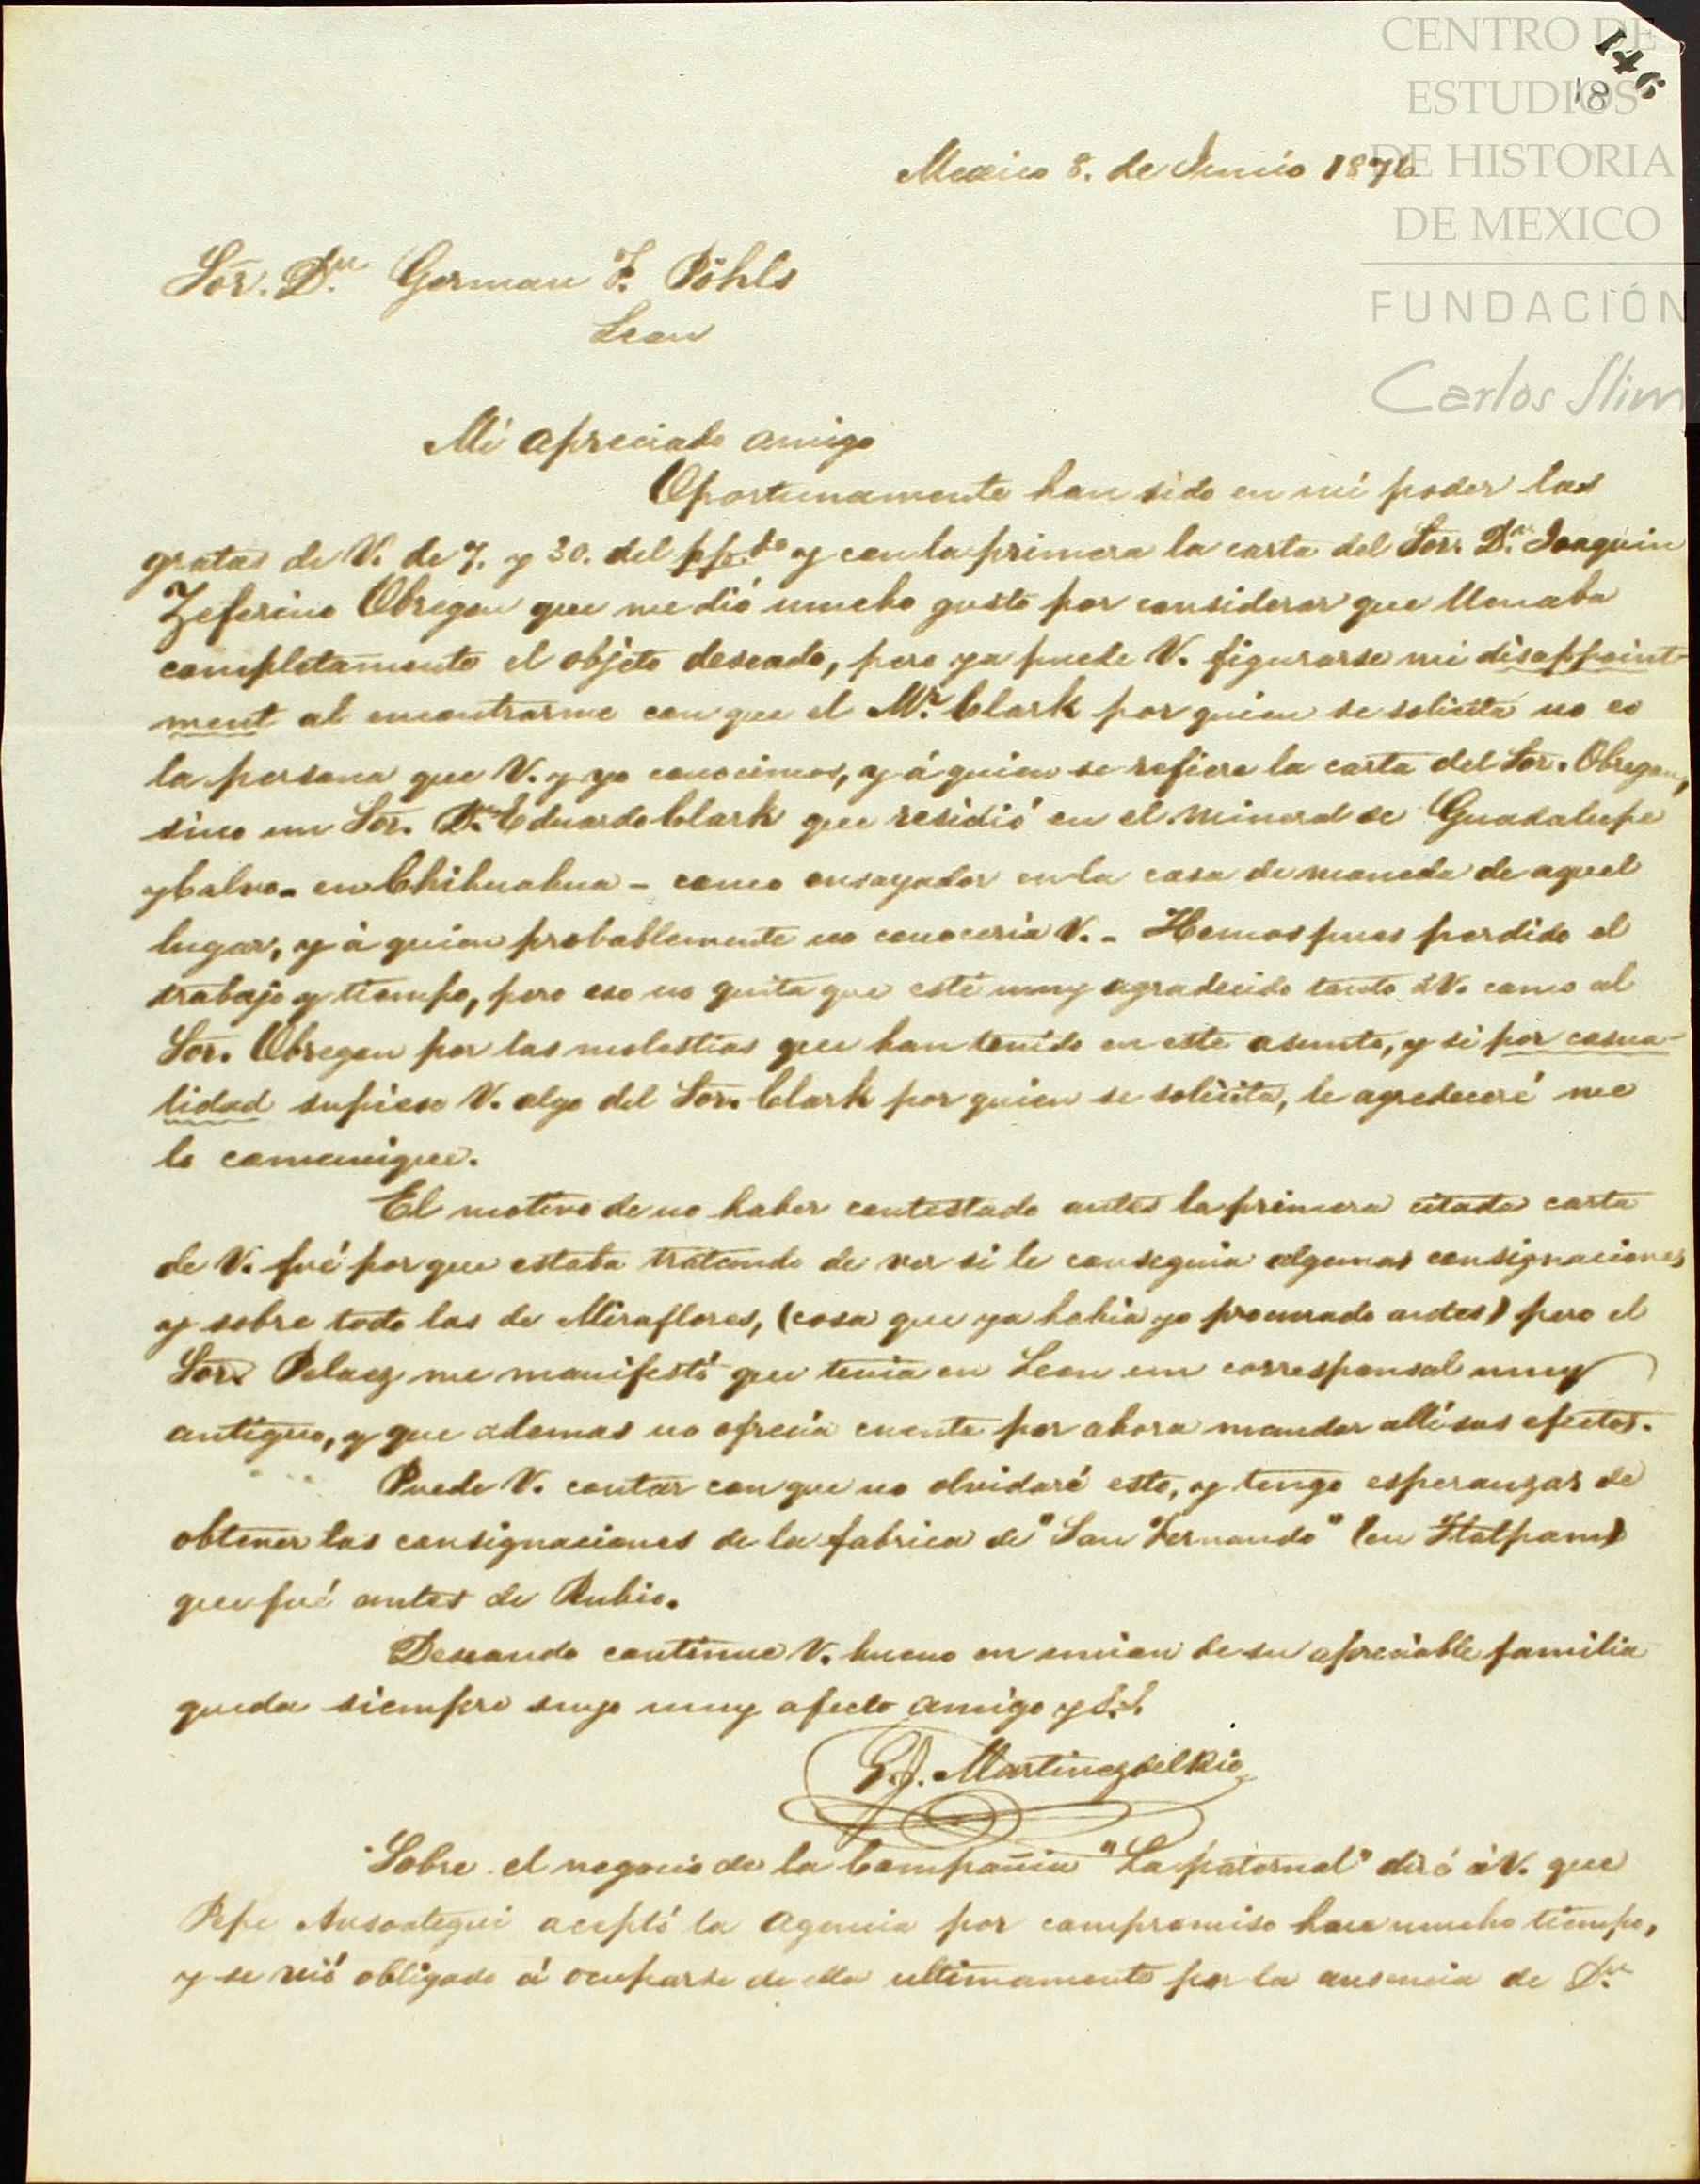 CENTRO DE
ESTUDIOS
DE HISTORIA
DE MEXICO
FUNDACIÓN
Carlos Slim
146
18
Mexico 8. de Junio 1876
Sor. Dn. German F. Pöhls
Leon
Mi apreciado amigo
Oportunamente han sido en mi poder las
gratas de V. de 7. y 30. del ppdo y con la primera la carta del Sor. Dn. Joaquin
Zeferino Obregon que me dió mucho gusto por considerar que llenaba
completamente el objeto deseado, pero ya puede V. figurarse mi disappoint-
ment al encontrarme con que el Mr. Clark por quien se solicita no es
la persona que V. y yo conocimos, y á quien se refiere la carta del Sor. Obregon,
sino un Sor. Dn. Eduardo Clark que residió en el mineral de Guadalupe
y Calvo - en Chihuahua - como ensayador en la casa de moneda de aquel
lugar, y á quien probablemente no conoceria V. - Hemos pues perdido el
trabajo y tiempo, pero eso no quita que esté muy agradecido tanto á V. como al
Sor. Obregon por las molestias que han tenido en este asunto, y si por casua-
lidad supiese V. algo del Sor. Clark por quien se solicita, le agradeceré me
lo comunique.
El motivo de no haber contestado antes la primera citada carta
de V. fué por que estaba tratando de ver si le conseguia algunas consignaciones
y sobre todo las de Miraflores, (cosa que ya habia yo procurado antes) pero el
Sor. Pelaez me manifestó que tenia en Leon un corresponsal muy
antiguo, y que ademas no ofrecia cuenta por ahora mandar allí sus efectos.
Puede V. contar con que no olvidaré esto, y tengo esperanzas de
obtener las consignaciones de la fabrica de "San Fernando" (en Tlalpam)
que fué antes de Rubio.
Deseando continue V. bueno en union de su apreciable familia
queda siempre suyo muy afecto amigo y S.S.
G. J. Martinez del Rio
Sobre el negocio de la Compañia "La paternal" diré á V. que
Pepe Ansoategui aceptó la Agencia por compromiso hace mucho tiempo,
y se vió obligado á ocuparse de ella ultimamente por la ausencia de Dn.